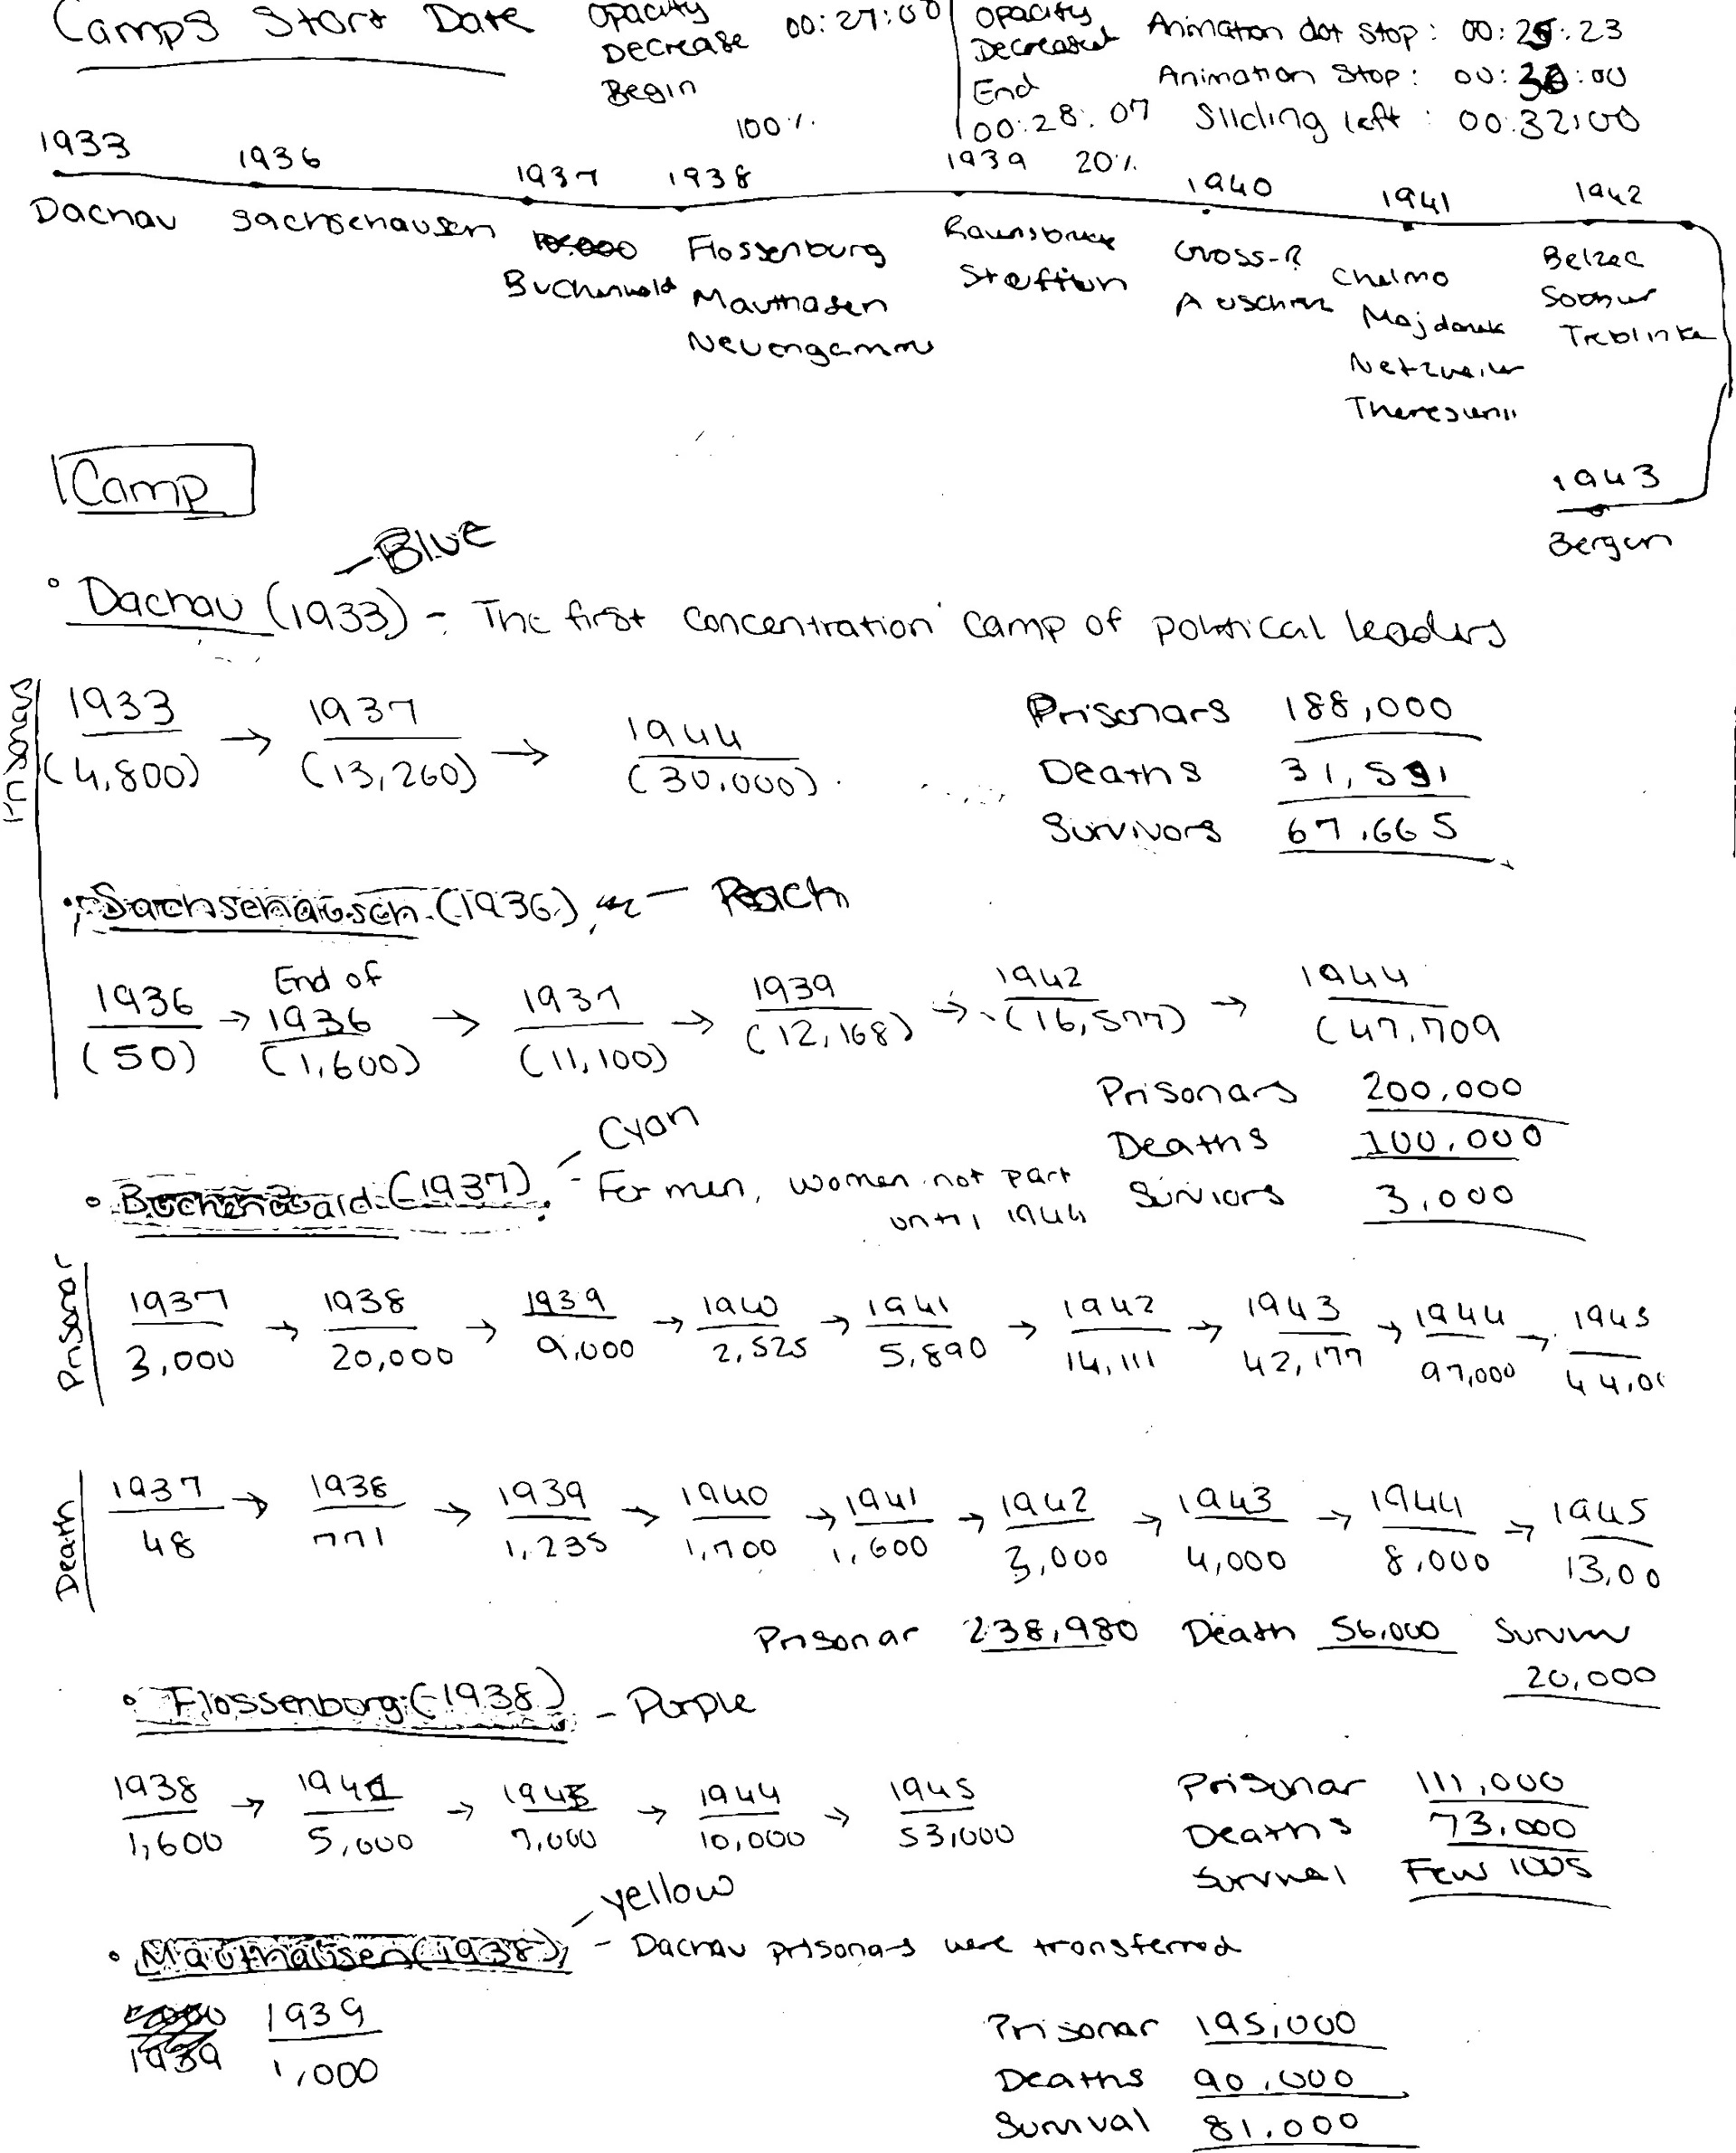 Camps Start Date
Opacity Decrease Begin 00:27:00
100%
Opacity Decreased End 00:28:07
20%
Animation dot stop: 00:25:23
Animation Stop: 00:30:00
Sliding left: 00:32:00
1933 1936 1937 1938 1939 1940 1941 1942
Dachau
Sachsehausen
Buchenwald
Flossenburg
Mauthasen
Neuengamme
Ravensbruck
Stuffton
Gross-R
Auschwitz
Chelmo
Majdanek
Netzweiler
Belzec
Sobibur
Treblinka
1943
Bergen
Camp
- Blue
• Dachau (1933) - The first concentration camp of political leaders
Prisonars
1933 → 1937 → 1944
(4,800) (13,260) (30,000)
Prisonars 188,000
Deaths 31,591
Survivors 67,665
• Sachsehausen (1936) - Peach
1936 → End of 1936 → 1937 → 1939 → 1942 → 1944
(50) (1,600) (11,100) (12,168) (16,577) (47,709
Prisonars 200,000
Deaths 100,000
Surviors 3,000
- Cyan
• Buchenwald (1937) - For men, women not part
until 1944
Prisonar
1937 → 1938 → 1939 → 1940 → 1941 → 1942 → 1943 → 1944 → 1945
3,000 20,000 9,000 2,525 5,890 14,111 42,177 97,000 44,0
Death
1937 → 1938 → 1939 → 1940 → 1941 → 1942 → 1943 → 1944 → 1945
48 771 1,235 1,700 1,600 3,000 4,000 8,000 13,00
Prisonar 238,980 Death 56,000
20,000
• Flossenborg (1938) - Purple
1938 → 1941 → 1943 → 1944 → 1945
1,600 5,000 7,000 10,000 53,000
Prisonar 111,000
Deaths 73,000
Survival Few 100s
- yellow
• Mauthausen (1938) - Dachau prisonars were transferred
1939 1939
1,000
Prisonar 195,000
Deaths 90,000
Survival 81,000